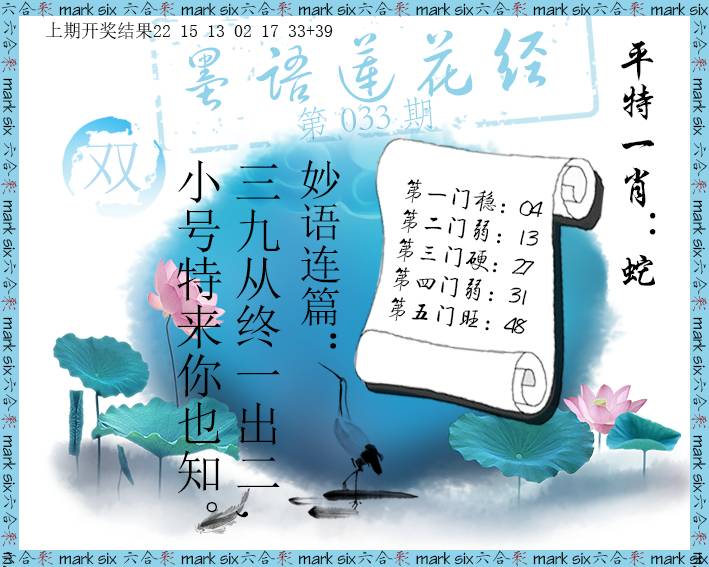 上期开奖结果22 15 13 02 17 33+39
墨语莲花经
第 033 期
双
平特一肖：蛇
妙语连篇：
三九从终一出二，
小号特来你也知。
第一门稳：04
第二门弱：13
第三门硬：27
第四门弱：31
第五门旺：48
六合彩 mark six 六合彩 mark six 六合彩 mark six 六合彩 mark six 六合彩 mark six 六合彩 mark six